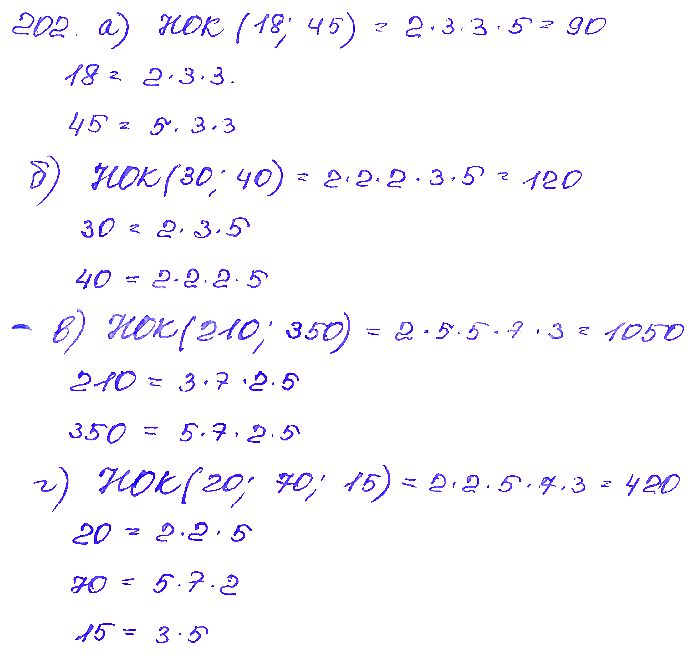 202. а) НОК (18; 45) = 2·3·3·5 = 90
18 = 2·3·3.
45 = 5·3·3
б) НОК (30; 40) = 2·2·2·3·5 = 120
30 = 2·3·5
40 = 2·2·2·5
- в) НОК (210; 350) = 2·5·5·7·3 = 1050
210 = 3·7·2·5
350 = 5·7·2·5
г) НОК (20; 70; 15) = 2·2·5·7·3 = 420
20 = 2·2·5
70 = 5·7·2
15 = 3·5